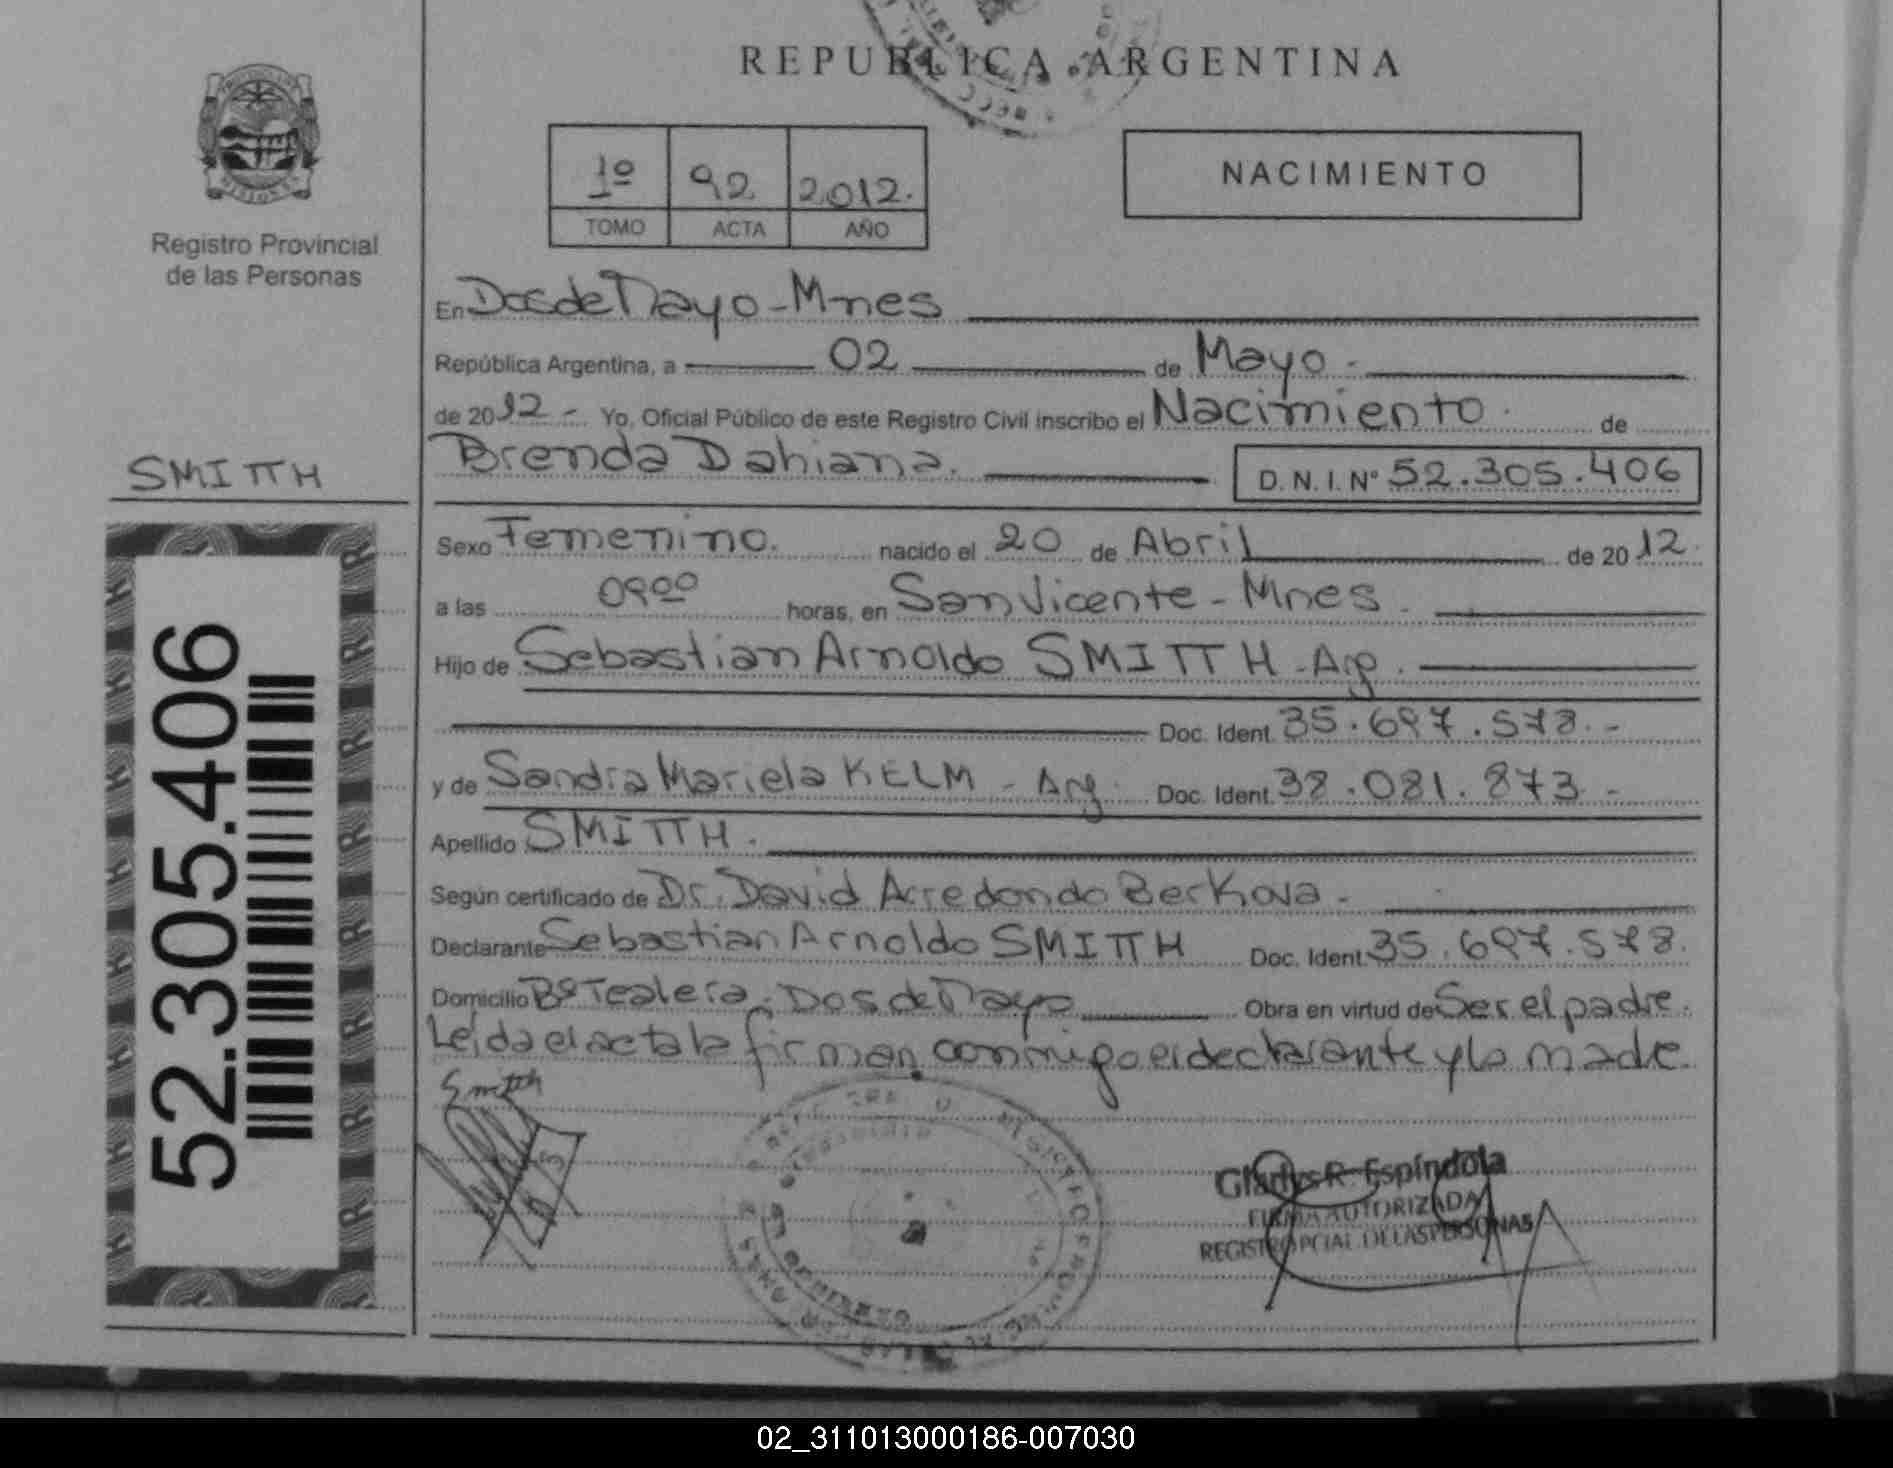 REPUBLICA ARGENTINA
1º 92 2012.
TOMO ACTA AÑO
NACIMIENTO
Registro Provincial
de las Personas
En Dos de Mayo - Mnes
República Argentina, a 02 de Mayo -
de 2012 - Yo, Oficial Público de este Registro Civil inscribo el Nacimiento. de
Brenda Dahiana. D. N. I. Nº 52.305.406
SMITTH
52.305.406
Sexo Femenino. nacido el 20 de Abril de 2012.
a las 09ºº horas, en San Vicente - Mnes.
Hijo de Sebastian Arnoldo SMITTH - Arg.
Doc. Ident. 35.697.578. -
y de Sandra Mariela KELM - Arg. Doc. Ident. 38.081.873 -
Apellido SMITTH.
Según certificado de Dr. David Arredondo Berkova -
Declarante Sebastian Arnoldo SMITTH Doc. Ident. 35.697.578.
Domicilio Bº Tealera. Dos de Mayo Obra en virtud de Ser el padre.
Leída el acta la firman conmigo el declarante y la madre.
Smitth
Gladys R. Espíndola
FIRMA AUTORIZADA
REGISTRO PCIAL. DE LAS PERSONAS
02_311013000186-007030